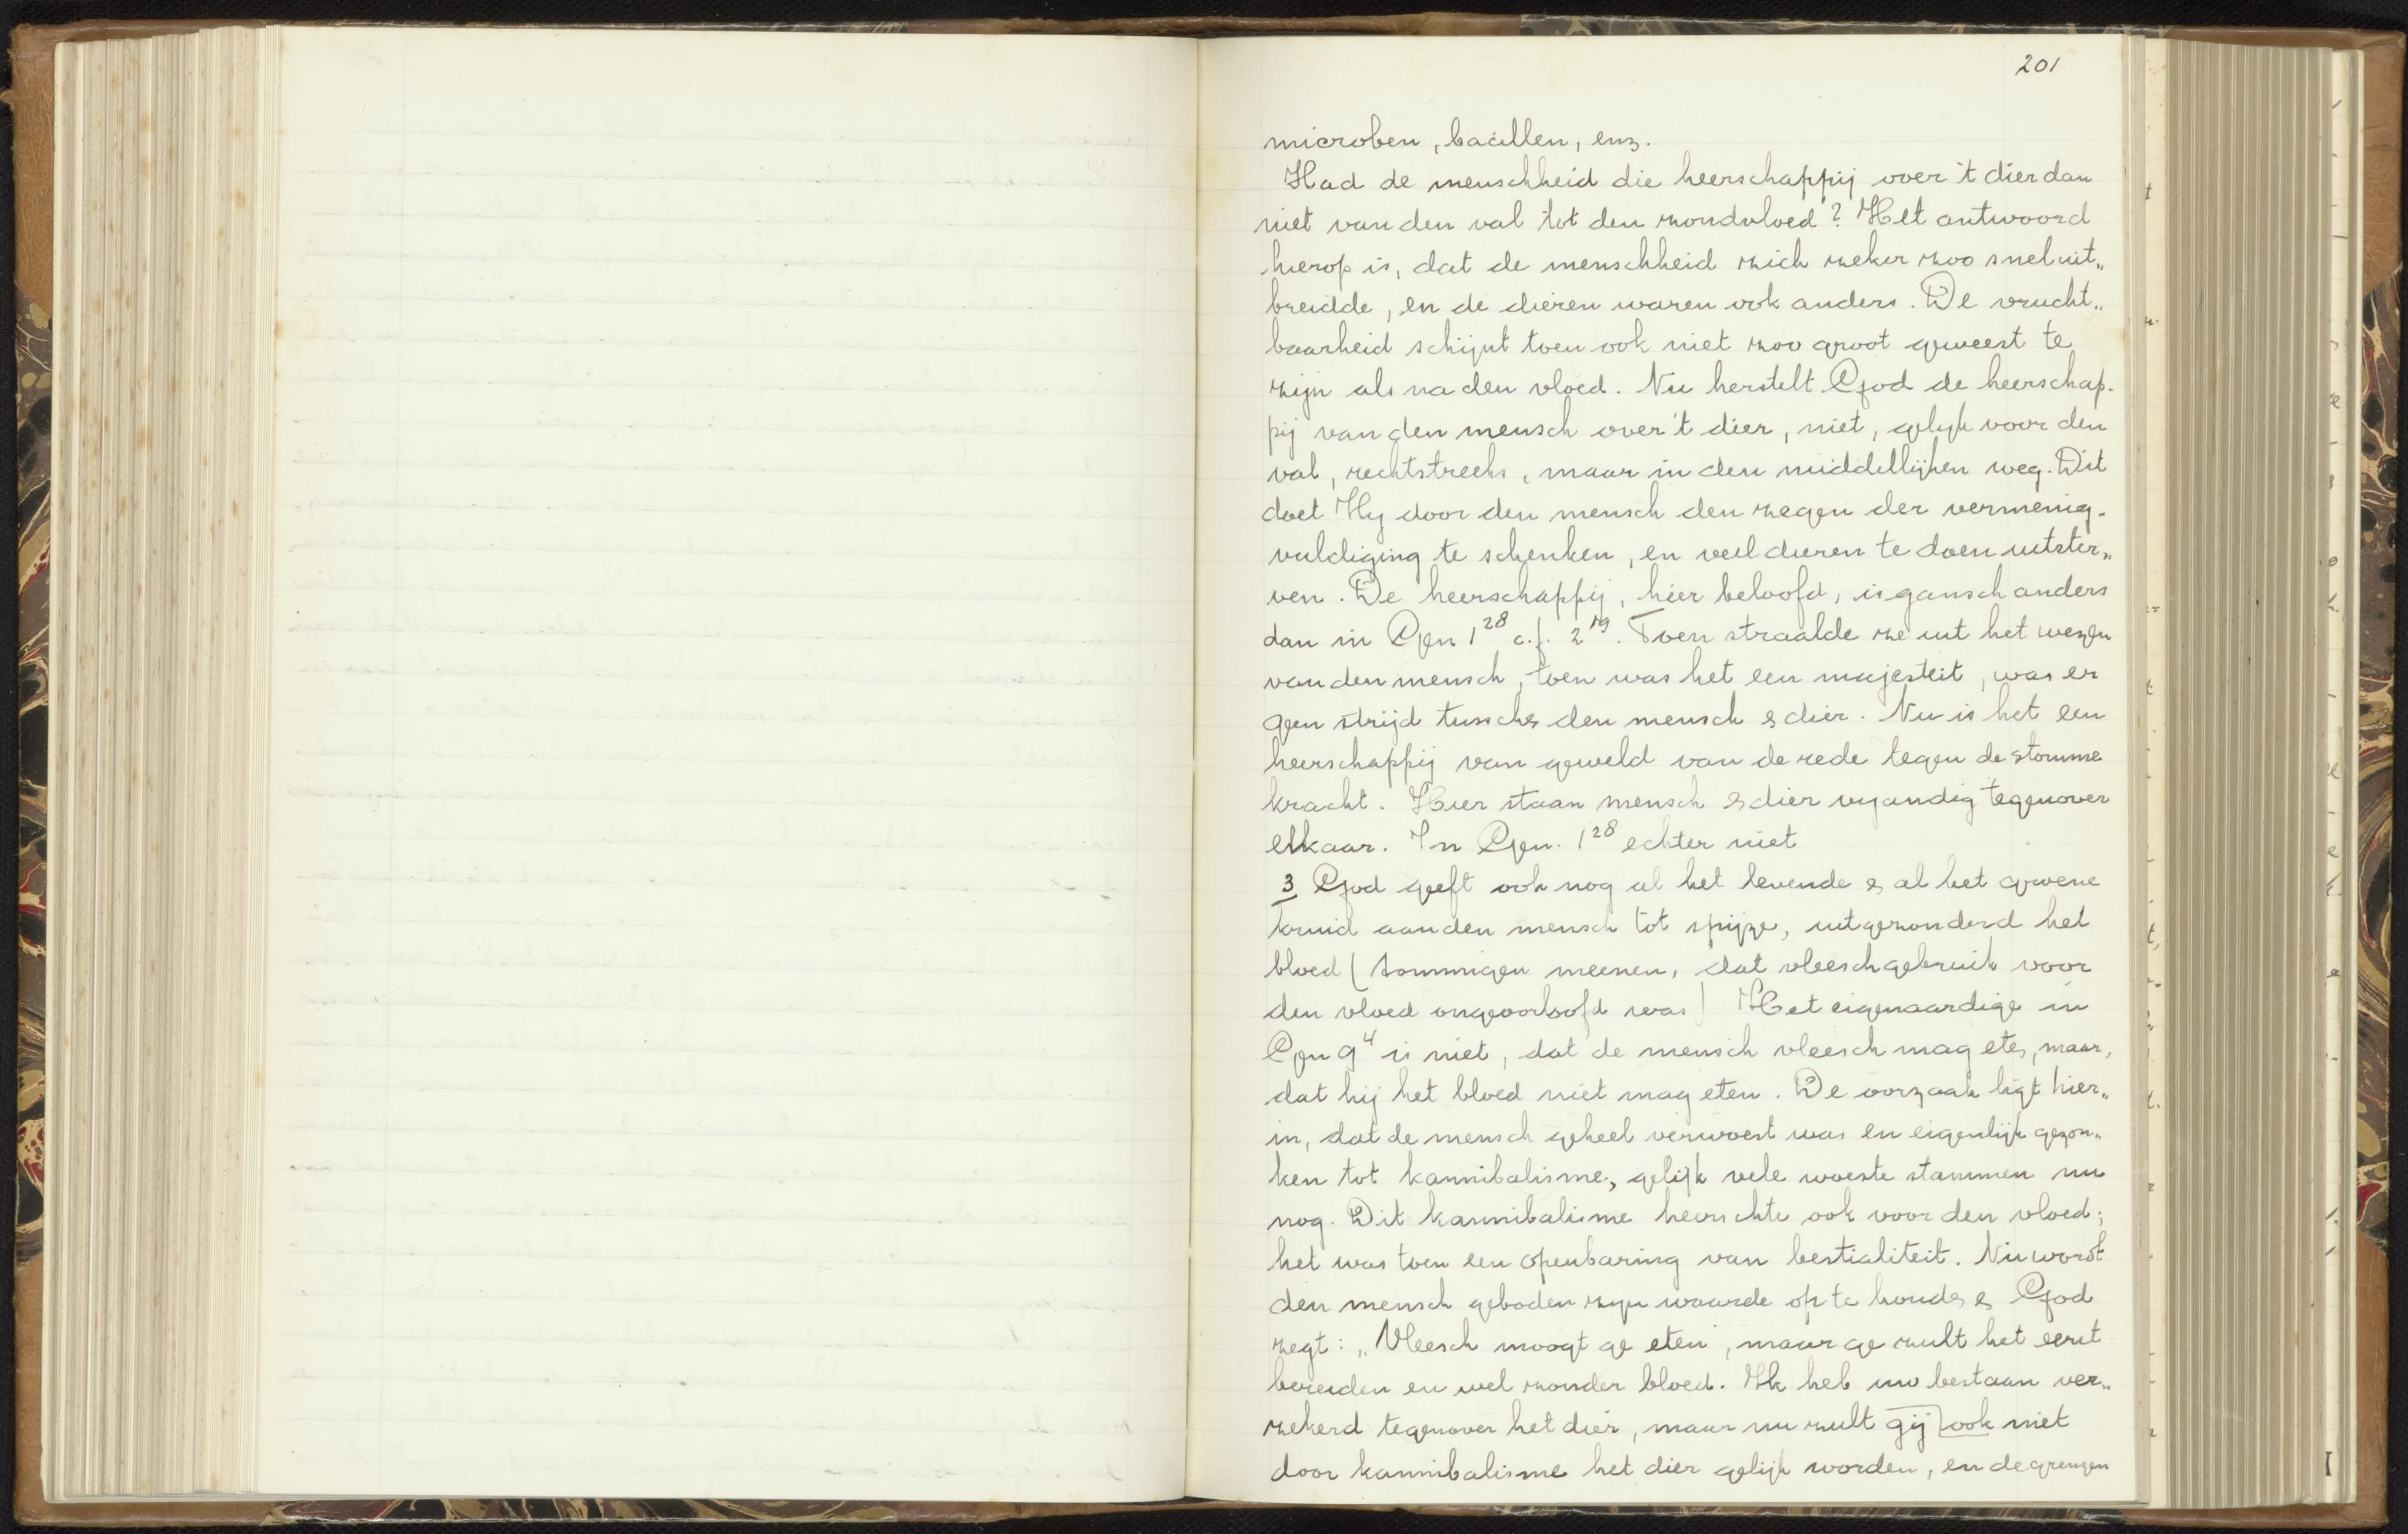 201
microben, bacillen, enz.
Had de menschheid die heerschappij over 't dier dan
niet van den val tot den zondvloed? Het antwoord
hierop is, dat de menschheid zich zeker zoo snel uit„
breidde, en de dieren waren ook anders. De vrucht„
baarheid schijnt toen ook niet zoo groot geweest te
zijn als na den vloed. Nu herstelt God de heerschap-
pij van den mensch over 't dier, niet, gelijk voor den
val, rechtstreeks, maar in den middellijken weg. Dit
doet Hij door den mensch den zegen der vermenig-
vuldiging te schenken, en veel dieren te doen uitster„
ven. De heerschappij, hier beloofd, is gansch anders
dan in Gen 1²⁸ c.f. 2¹⁹. Toen straalde ze uit het wezen
van den mensch, toen was het een majesteit, was er
geen strijd tusschen den mensch & dier. Nu is het een
heerschappij van geweld van de rede tegen de stomme
kracht. Hier staan mensch & dier vijandig tegenover
elkaar. In Gen. 1²⁸ echter niet
3 God geeft ook nog al het levende & al het groene
kruid aan den mensch tot spijze, uitgezonderd het
bloed (sommigen meenen, dat vleeschgebruik voor
den vloed ongeoorloofd was) Het eigenaardige in
Gen 9⁴ is niet, dat de mensch vleesch mag eten, maar,
dat hij het bloed niet mag eten. De oorzaak ligt hier„
in, dat de mensch geheel verwoest was en eigenlijk gezon„
ken tot kannibalisme, gelijk vele woeste stammen nu
nog. Dit kannibalisme heerschte ook voor den vloed;
het was toen een openbaring van bestialiteit. Nu wordt
den mensch geboden zijn waarde op te houden & God
zegt: „Vleesch moogt ge eten, maar ge zult het eerst
bereiden en wel zonder bloed. Ik heb uw bestaan ver„
zekerd tegenover het dier, maar nu zult gij ook niet
door kannibalisme het dier gelijk worden, en de grenzen